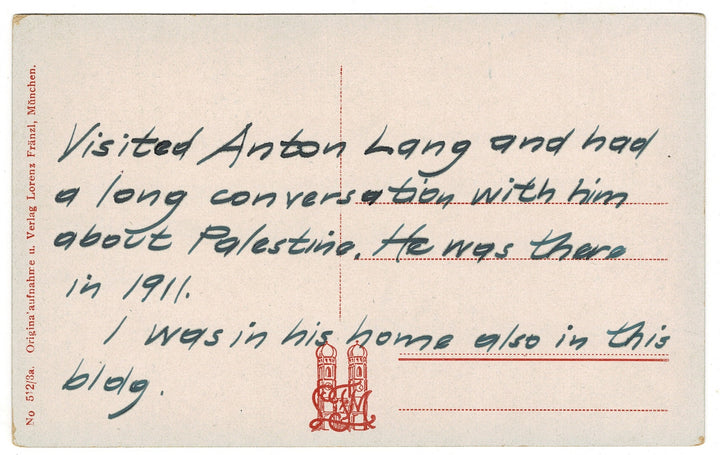 Visited Anton Lang and had
a long conversation with him
about Palestine. He was there
in 1911.
I was in his home also in this
bldg.
No 512/3a. Originalaufnahme u. Verlag Lorenz Fränzl, München.